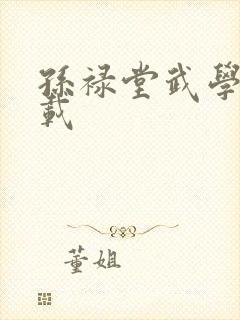 孫祿堂武學
載
董姐